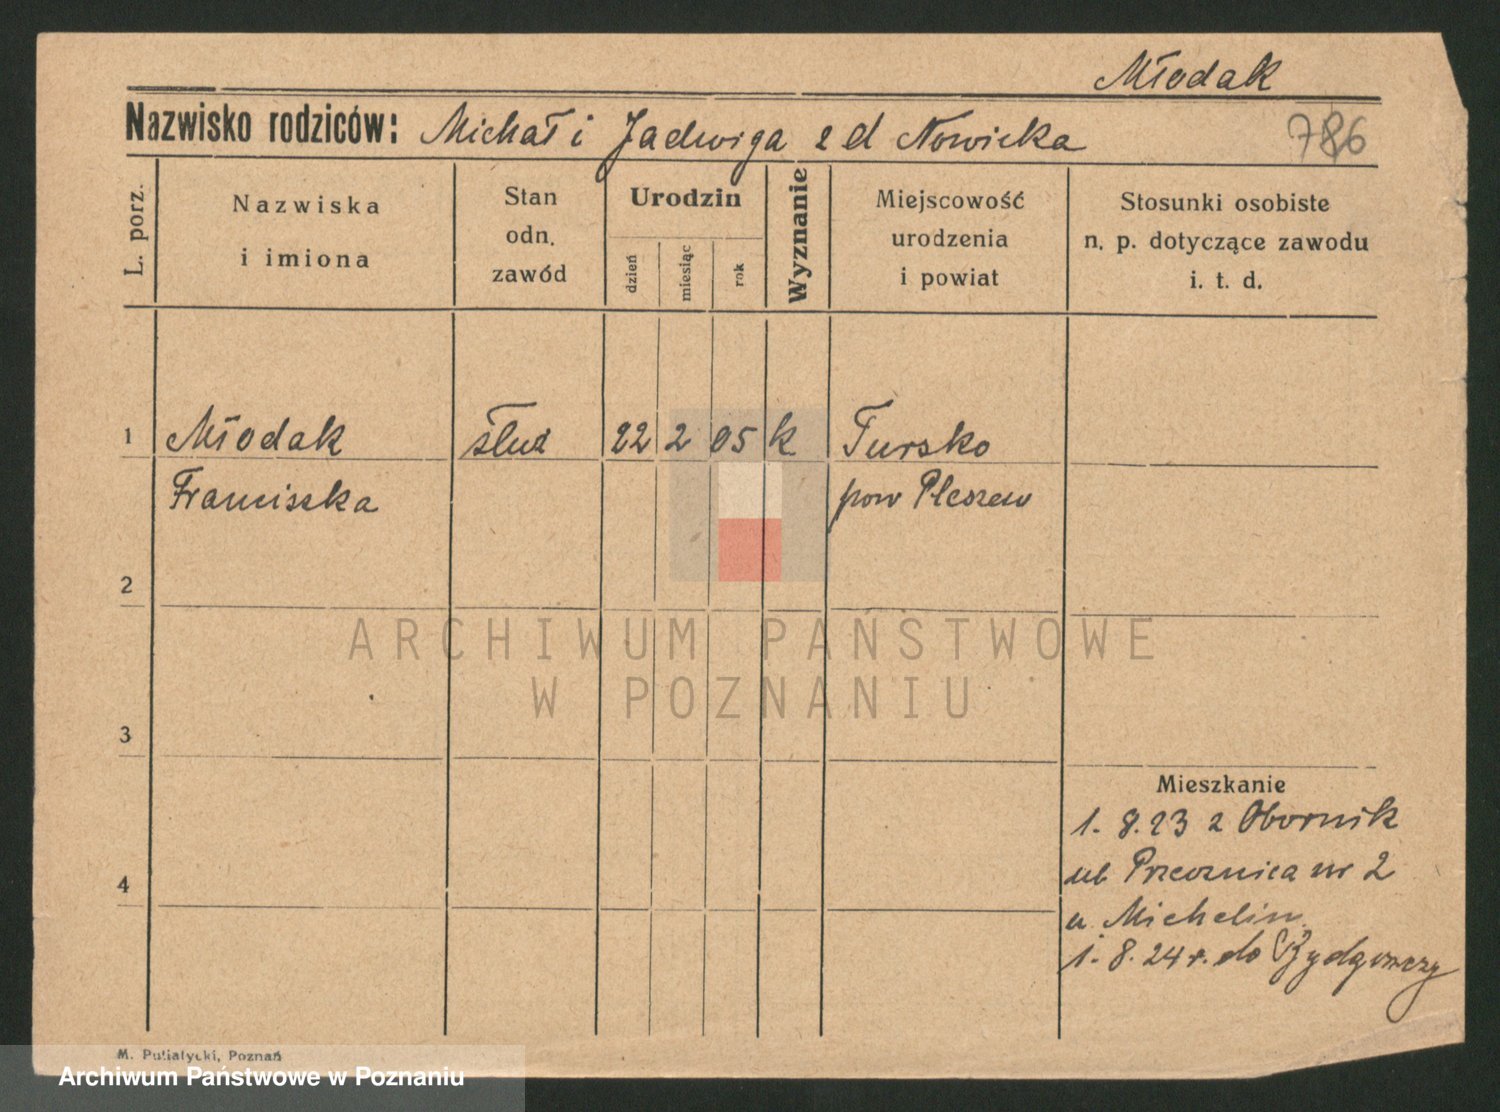 Młodak
Nazwisko rodziców: Michał i Jadwiga z d Nowicka
786
L. porz.
Nazwiska
i imiona
Stan
odn.
zawód
Urodzin
dzień
miesiąc
rok
Wyznanie
Miejscowość
urodzenia
i powiat
Stosunki osobiste
n. p. dotyczące zawodu
i. t. d.
1 Młodak służ 22 2 05 k Tursko
Franciszka pow Pleszew
2
ARCHIWUM PAŃSTWOWE
W POZNANIU
3
Mieszkanie
1. 8. 23 z Obornik
4
ul Przecznica nr 2
u. Michelin.
1. 8. 24 r. do Bydgoszczy
M. Putiatycki, Poznań
Archiwum Państwowe w Poznaniu